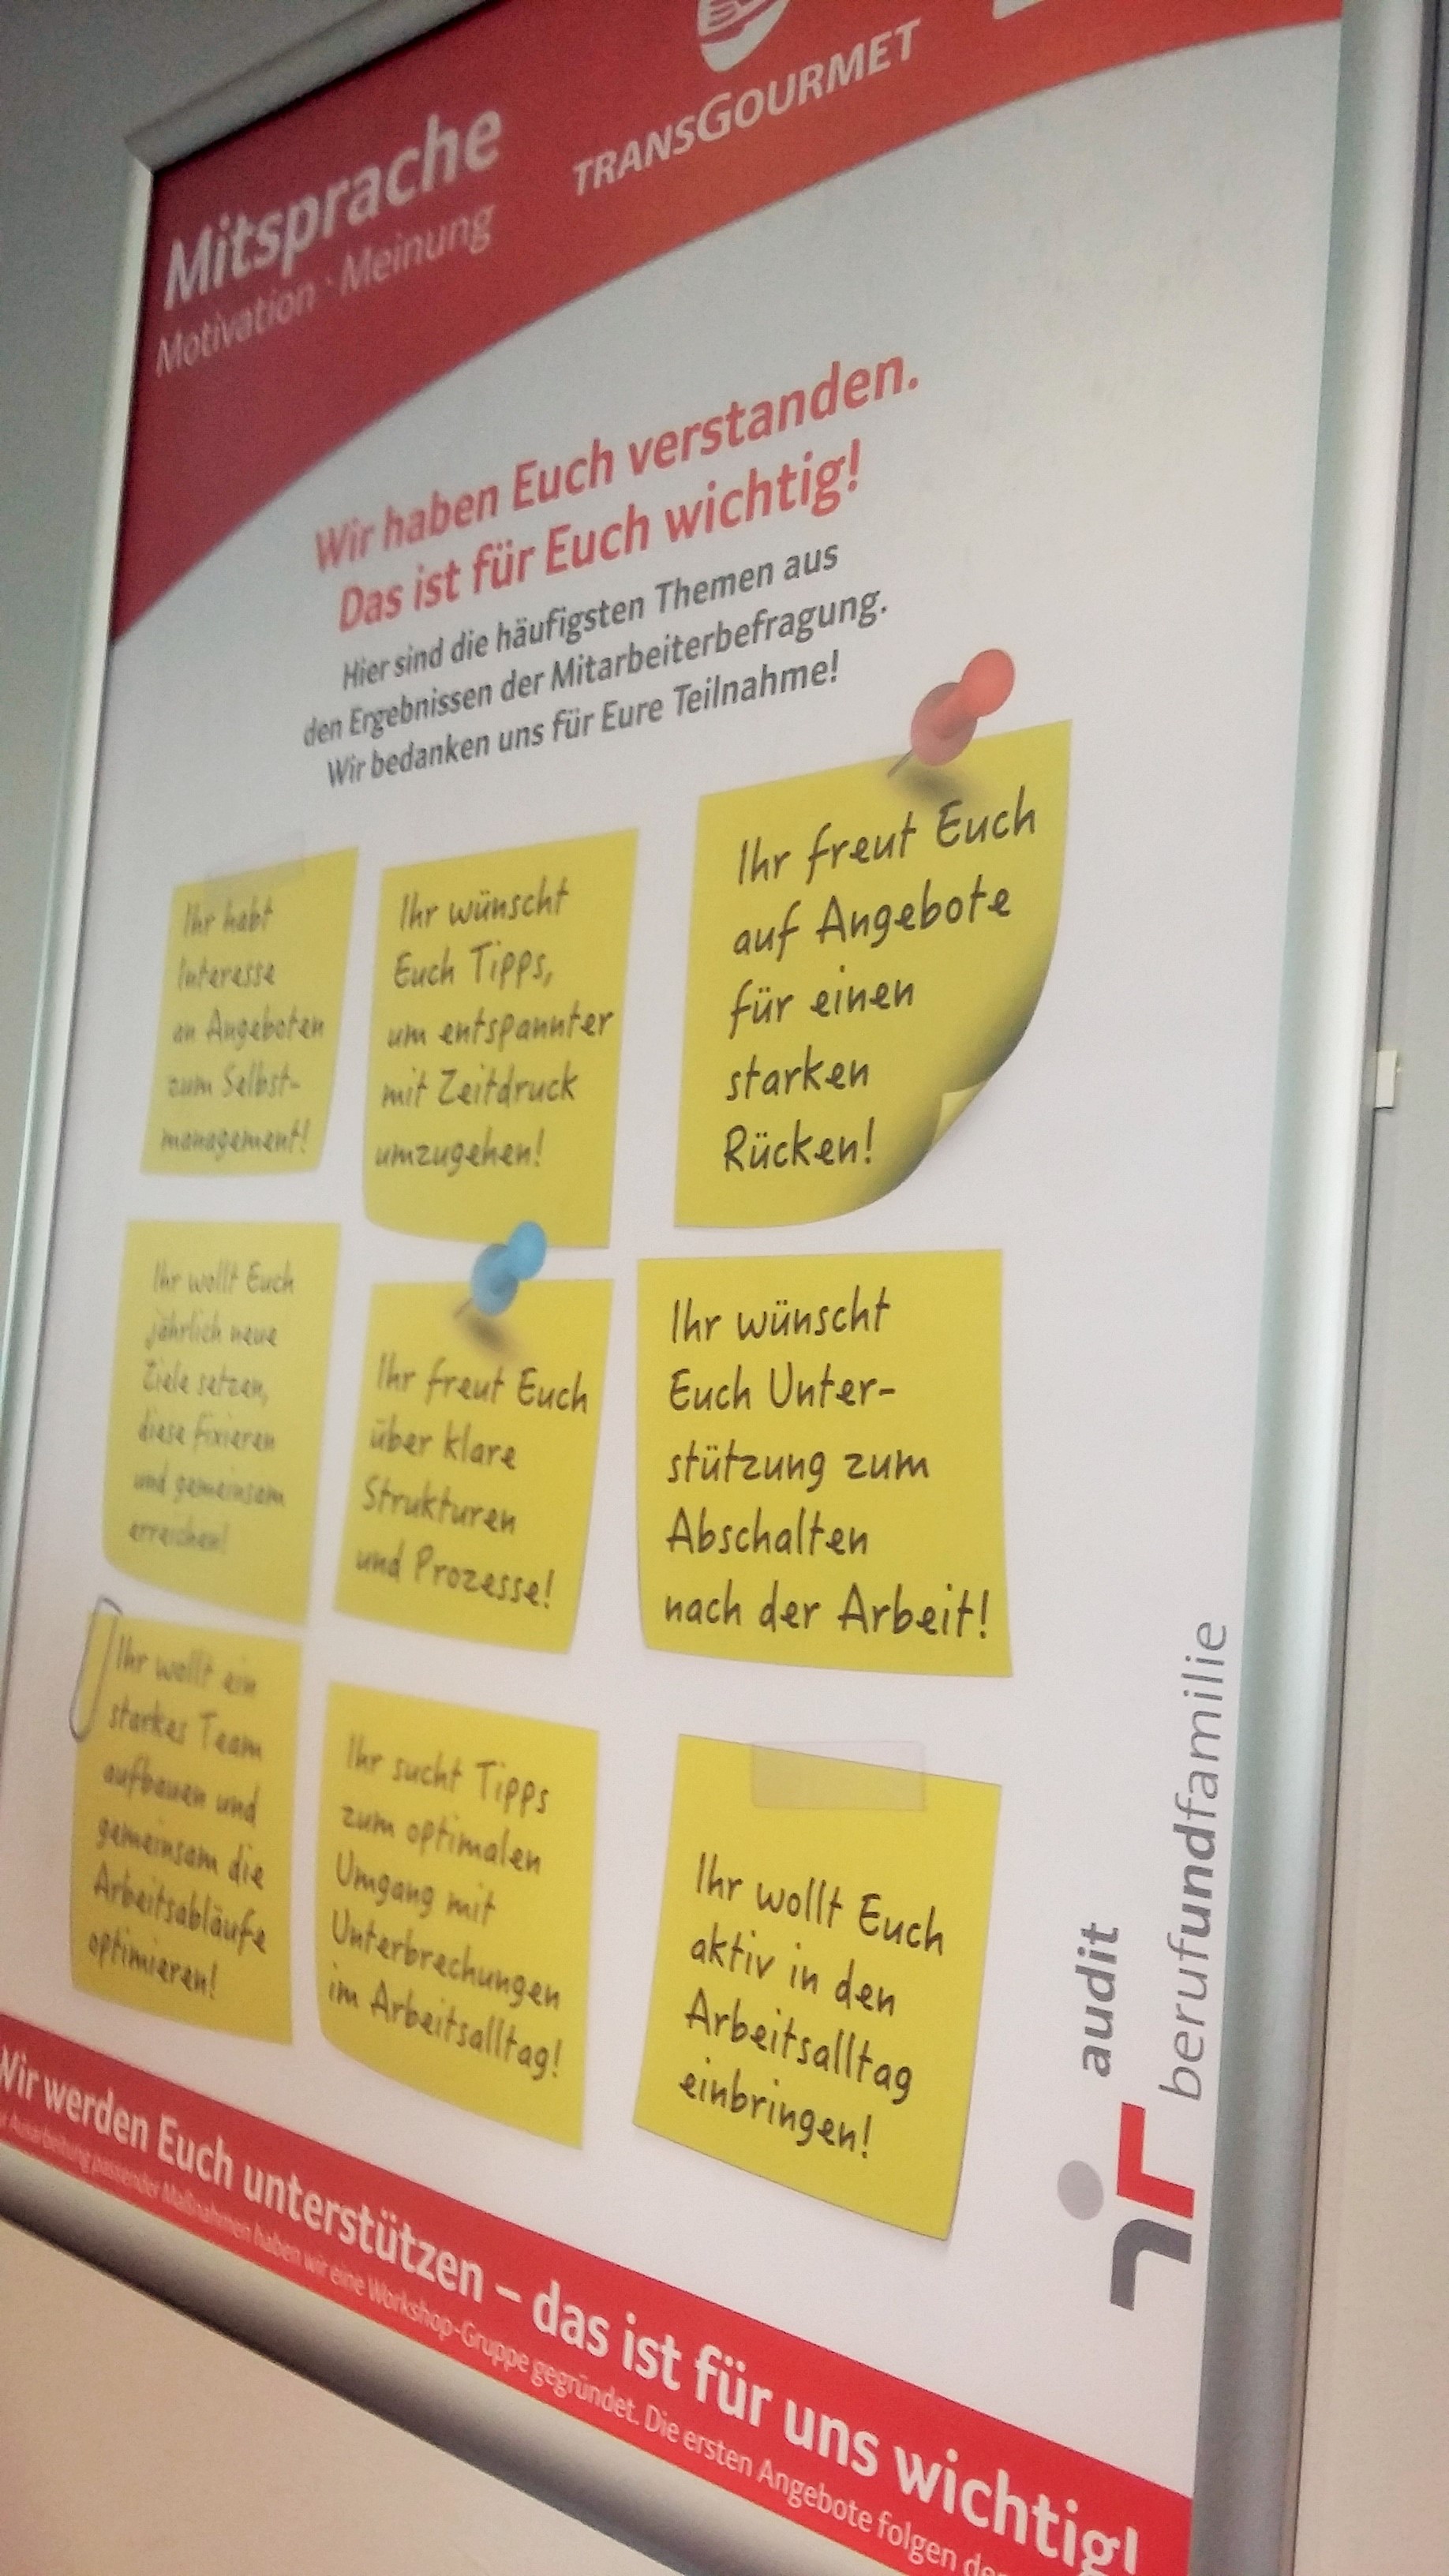 Mitsprache
Motivation · Meinung
TRANSGOURMET
Wir haben Euch verstanden.
Das ist für Euch wichtig!
Hier sind die häufigsten Themen aus
den Ergebnissen der Mitarbeiterbefragung.
Wir bedanken uns für Eure Teilnahme!
Ihr habt
Interesse
an Angeboten
zum Selbst-
management!
Ihr wünscht
Euch Tipps,
um entspannter
mit Zeitdruck
umzugehen!
Ihr freut Euch
auf Angebote
für einen
starken
Rücken!
Ihr wollt Euch
jährlich neue
Ziele setzen,
diese fixieren
und gemeinsam
erreichen!
Ihr freut Euch
über klare
Strukturen
und Prozesse!
Ihr wünscht
Euch Unter-
stützung zum
Abschalten
nach der Arbeit!
Ihr wollt ein
starkes Team
aufbauen und
gemeinsam die
Arbeitsabläufe
optimieren!
Ihr sucht Tipps
zum optimalen
Umgang mit
Unterbrechungen
im Arbeitsalltag!
Ihr wollt Euch
aktiv in den
Arbeitsalltag
einbringen!
audit
berufundfamilie
Wir werden Euch unterstützen – das ist für uns wichtig!
Ausarbeitung passender Maßnahmen haben wir eine Workshop-Gruppe gegründet. Die ersten Angebote folgen